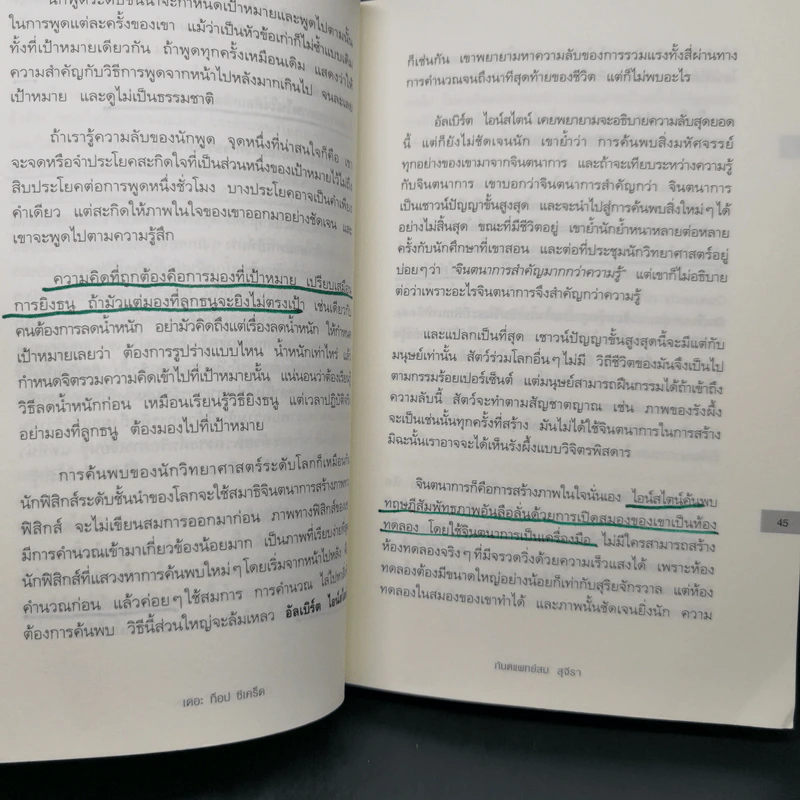 นักพูดระดับชั้นนำจะกำหนดเป้าหมายและพูดไปตามนั้น
ในการพูดแต่ละครั้งของเขา แม้ว่าเป็นหัวข้อเก่าก็ไม่ซ้ำแบบเดิม
ทั้งที่เป้าหมายเดียวกัน ถ้าพูดทุกครั้งเหมือนเดิม แสดงว่าให้
ความสำคัญกับวิธีการพูดจากหน้าไปหลังมากเกินไป จนละเลย
เป้าหมาย และดูไม่เป็นธรรมชาติ
ถ้าเรารู้ความลับของนักพูด จุดหนึ่งที่น่าสนใจก็คือ เขา
จะจดหรือจำประโยคสะกิดใจที่เป็นส่วนหนึ่งของเป้าหมายไว้ไม่ถึง
สิบประโยคต่อการพูดหนึ่งชั่วโมง บางประโยคอาจเป็นคำเพียง
คำเดียว แต่สะกิดให้ภาพในใจของเขาออกมาอย่างชัดเจน และ
เขาจะพูดไปตามความรู้สึก
ความคิดที่ถูกต้องคือการมองที่เป้าหมาย เปรียบเสมือน
การยิงธนู ถ้ามัวแต่มองที่ลูกธนูจะยิงไม่ตรงเป้า เช่นเดียวกับ
คนต้องการลดน้ำหนัก อย่ามัวคิดถึงแต่เรื่องลดน้ำหนัก ให้กำหนด
เป้าหมายเลยว่า ต้องการรูปร่างแบบไหน น้ำหนักเท่าไหร่ แล้ว
กำหนดจิตรวมความคิดเข้าไปที่เป้าหมายนั้น แน่นอนว่าต้องเรียนรู้
วิธีลดน้ำหนักก่อน เหมือนเรียนรู้วิธียิงธนู แต่เวลาปฏิบัติจริง
อย่ามองที่ลูกธนู ต้องมองไปที่เป้าหมาย
การค้นพบของนักวิทยาศาสตร์ระดับโลกก็เหมือนกัน
นักฟิสิกส์ระดับชั้นนำของโลกจะใช้สมาธิจินตนาการสร้างภาพทาง
ฟิสิกส์ จะไม่เขียนสมการออกมาก่อน ภาพทางฟิสิกส์ของ
มีการคำนวณเข้ามาเกี่ยวข้องน้อยมาก เป็นภาพที่เรียบง่ายที่สุด
นักฟิสิกส์ที่แสวงหาการค้นพบใหม่ๆ โดยเริ่มจากหน้าไปหลัง
คำนวณก่อน แล้วค่อยๆ ใช้สมการ การคำนวณ ไล่ไปหาสิ่งที่
ต้องการค้นพบ วิธีนี้ส่วนใหญ่จะล้มเหลว อัลเบิร์ต ไอน์สไตน์
เดอะ ท็อป ซีเคร็ต
ก็เช่นกัน เขาพยายามหาความลับของการรวมแรงทั้งสี่ผ่านทาง
การคำนวณจนถึงนาทีสุดท้ายของชีวิต แต่ก็ไม่พบอะไร
อัลเบิร์ต ไอน์สไตน์ เคยพยายามจะอธิบายความลับสุดยอด
นี้ แต่ก็ยังไม่ชัดเจนนัก เขาย้ำว่า การค้นพบสิ่งมหัศจรรย์
ทุกอย่างของเขามาจากจินตนาการ และถ้าจะเทียบระหว่างความรู้
กับจินตนาการ เขาบอกว่าจินตนาการสำคัญกว่า จินตนาการ
เป็นเชาวน์ปัญญาขั้นสูงสุด และจะนำไปสู่การค้นพบสิ่งใหม่ๆ ได้
อย่างไม่สิ้นสุด ขณะที่มีชีวิตอยู่ เขาย้ำนักย้ำหนาหลายต่อหลาย
ครั้งกับนักศึกษาที่เขาสอน และต่อที่ประชุมนักวิทยาศาสตร์อยู่
บ่อยๆ ว่า “จินตนาการสำคัญมากกว่าความรู้” แต่เขาก็ไม่อธิบาย
ต่อว่าเพราะอะไรจินตนาการจึงสำคัญกว่าความรู้
และแปลกเป็นที่สุด เชาวน์ปัญญาขั้นสูงสุดนี้จะมีแต่กับ
มนุษย์เท่านั้น สัตว์ร่วมโลกอื่นๆ ไม่มี วิถีชีวิตของมันจึงเป็นไป
ตามกรรมร้อยเปอร์เซ็นต์ แต่มนุษย์สามารถฝืนกรรมได้ถ้าเข้าถึง
ความลับนี้ สัตว์จะทำตามสัญชาตญาณ เช่น ภาพของรังผึ้ง
จะเป็นเช่นนั้นทุกครั้งที่สร้าง มันไม่ได้ใช้จินตนาการในการสร้าง
มิฉะนั้นเราอาจจะได้เห็นรังผึ้งแบบวิจิตรพิสดาร
จินตนาการก็คือการสร้างภาพในใจนั่นเอง ไอน์สไตน์ค้นพบ
ทฤษฎีสัมพัทธภาพอันลือลั่นด้วยการเปิดสมองของเขาเป็นห้อง
ทดลอง โดยใช้จินตนาการเป็นเครื่องมือ ไม่มีใครสามารถสร้าง
ห้องทดลองจริงๆ ที่มีจรวดวิ่งด้วยความเร็วแสงได้ เพราะห้อง
ทดลองต้องมีขนาดใหญ่อย่างน้อยก็เท่ากับสุริยจักรวาล แต่ห้อง
ทดลองในสมองของเขาทำได้ และภาพนั้นชัดเจนยิ่งนัก ความ
45
ทันตแพทย์สม สุจีรา